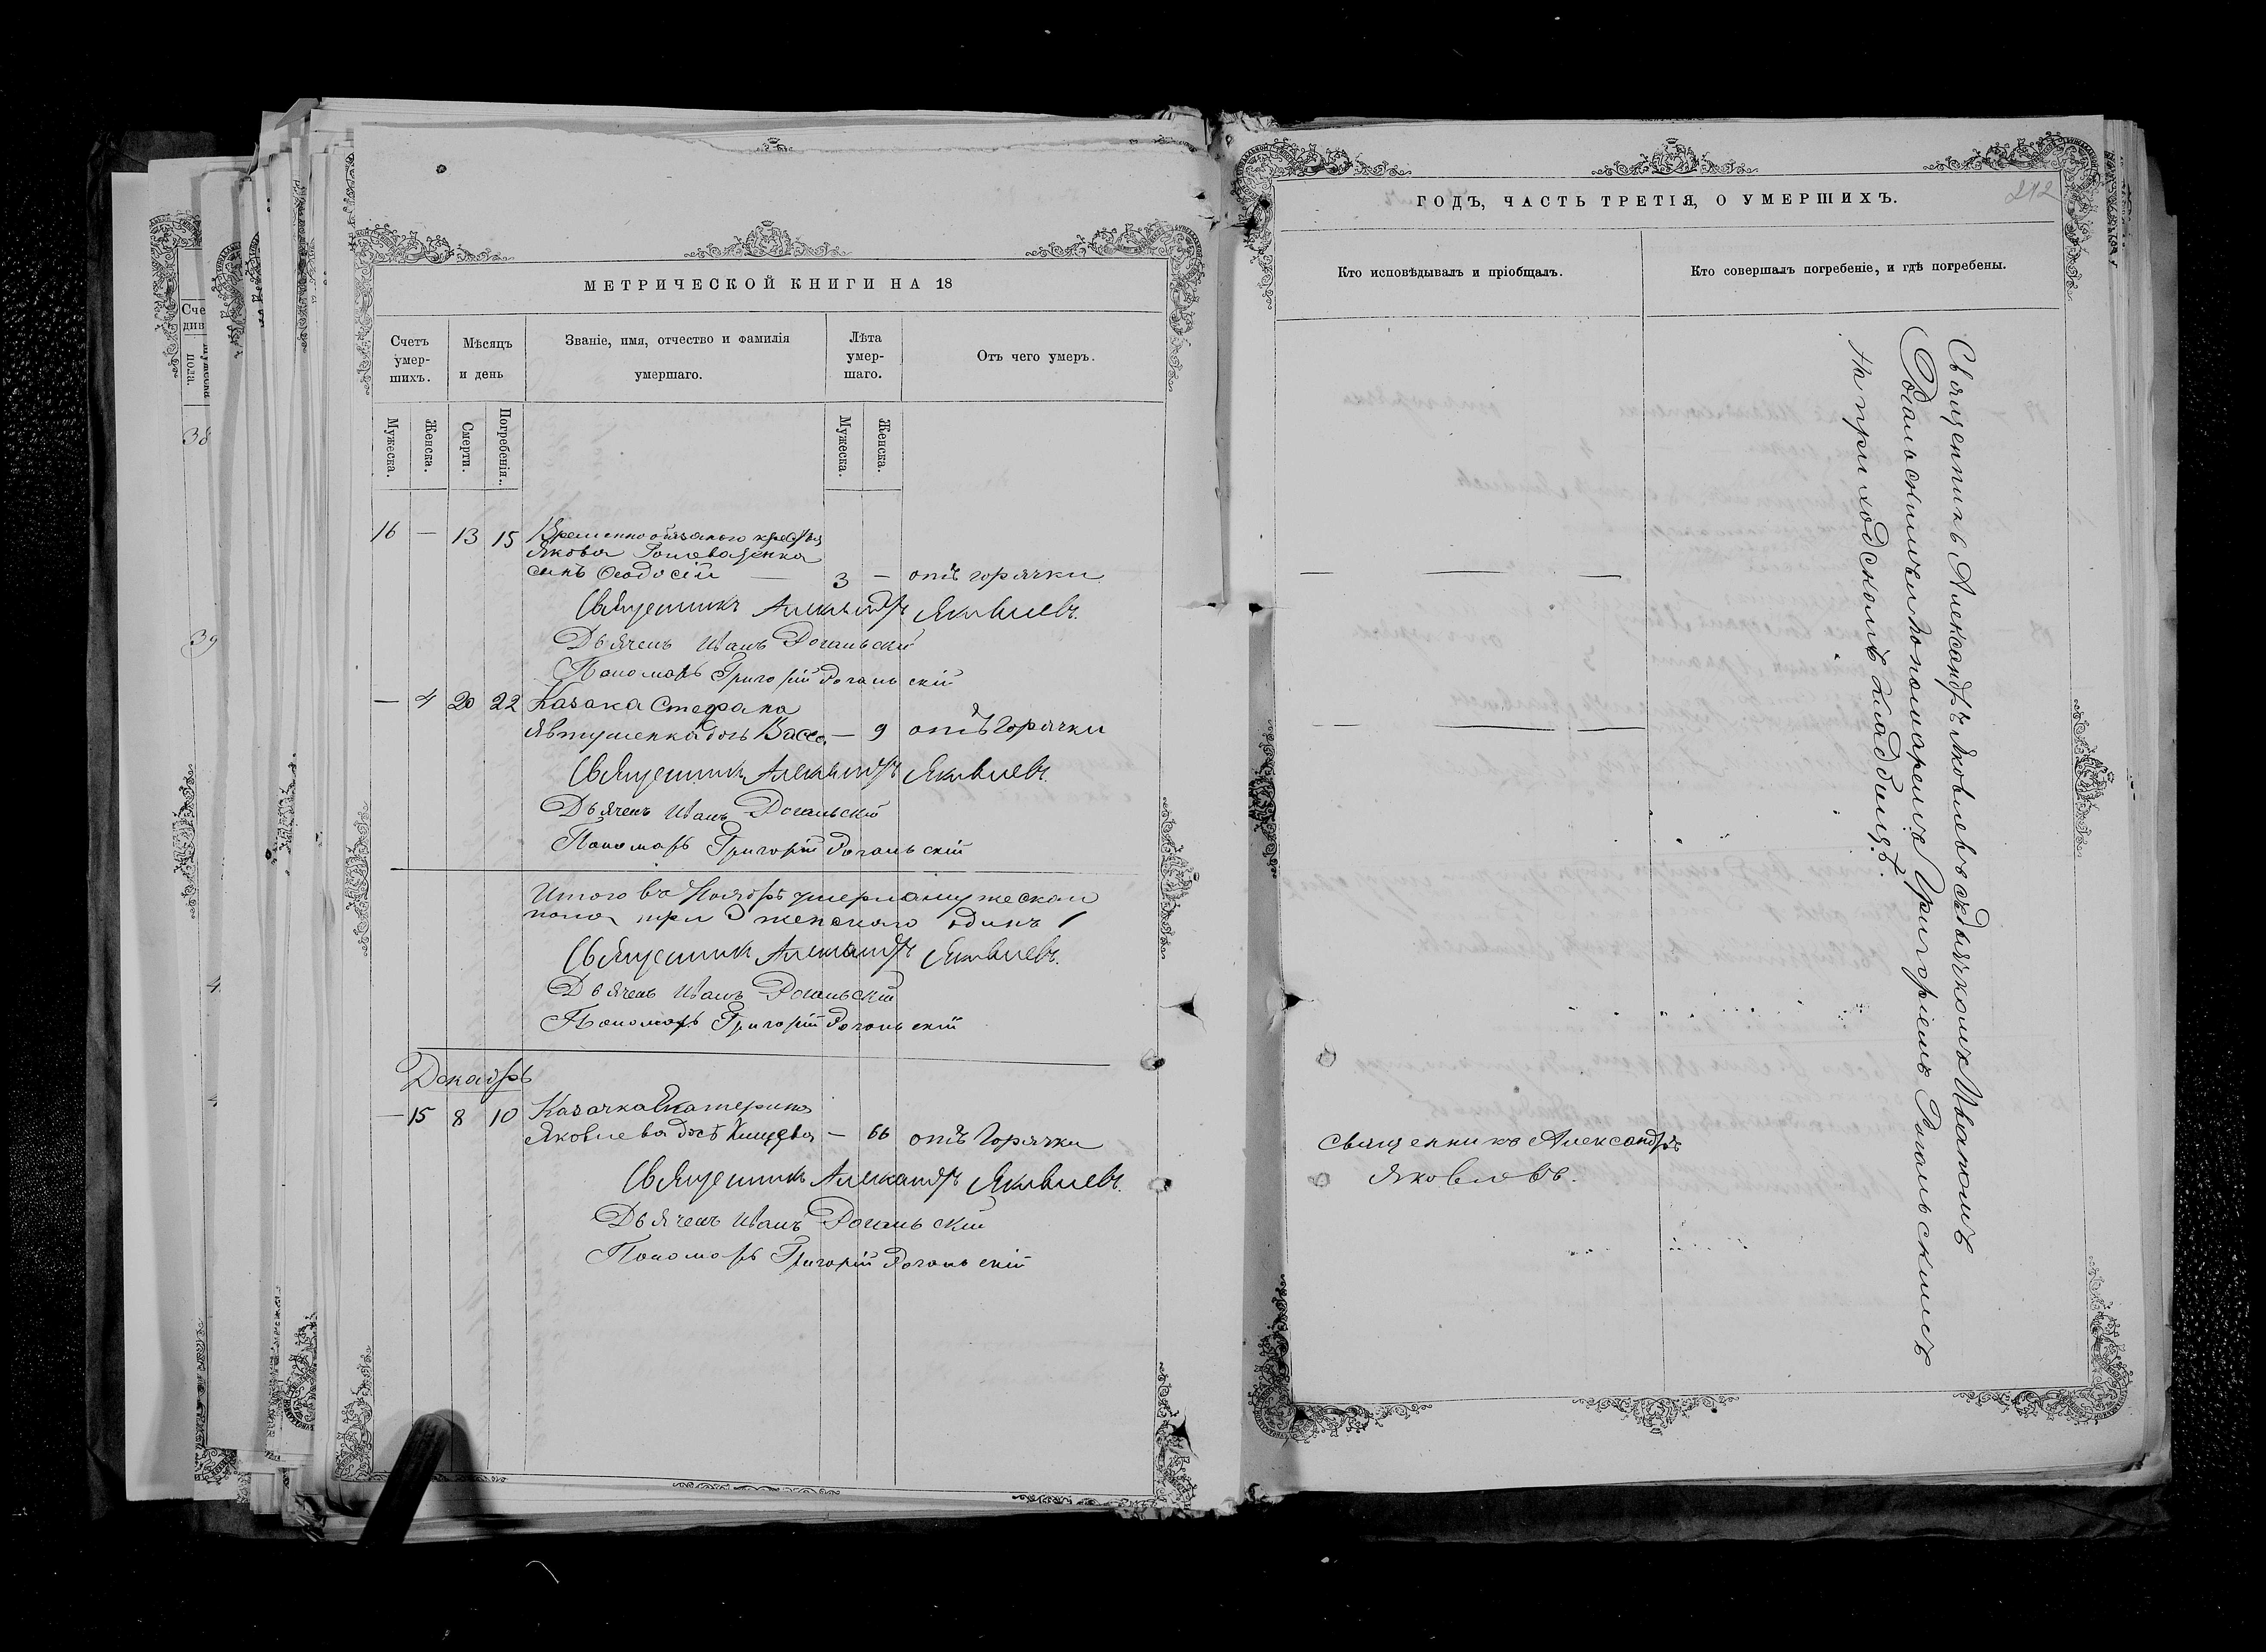 38
39
МЕТРИЧЕСКОЙ КНИГИ НА 18
Счетъ умер-шихъ.
Мѣсяцъ и день
Званіе, имя, отчество и фамилія умершаго.
Лѣта умер-шаго.
Отъ чего умеръ.
Мужеска.
Женска.
Смерти.
Погребенія.
Мужеска.
Женска.
16 — 13 15 Временно обязаного крестьян
Якова
сынъ Ѳеодосій — 3 — отъ горячки
Священникъ Александръ Яковлевъ.
Дьячекъ Иванъ Рогальскій
Пономарь Григорій Рогальскій
— 4 20 22 Казака Стефана
Явтушенка дочь Васса — 9 отъ горячки
Священникъ Александръ Яковлевъ.
Дьячекъ Иванъ Рогальскій
Пономарь Григорій Рогальскій
Итого въ Ноябрѣ умерло мужескаго
пола три 3 женскаго одинъ 1
Священникъ Александръ Яковлевъ.
Дьячекъ Иванъ Рогальскій
Пономарь Григорій Рогальскій
Декабрь
— 15 8 10 Казачка Екатерина
Яковлева дочь — 66 отъ Горячки
Священникъ Александръ Яковлевъ.
Дьячекъ Иванъ Рогальскій
Пономарь Григорій Рогальскій
ГОДЪ, ЧАСТЬ ТРЕТІЯ, О УМЕРШИХЪ.
212
Кто исповѣдывалъ и пріобщалъ.
Кто совершалъ погребеніе, и гдѣ погребены.
Священникъ Александръ Яковлевъ съ дьячкомъ Иваномъ
Рогальскимъ и пономаремъ Григоріемъ Рогальскимъ
на приходскомъ кладбищѣ.
Священникъ Александръ
Яковлевъ.